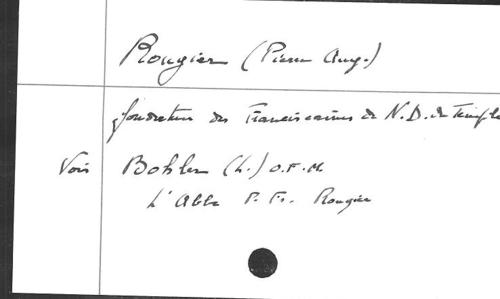 Rougier (Pierre Aug.)
fondateur des Franciscaines de N.D. du Temple
Voir Bohler (L.) O.F.M.
L'Abbé P. Fr. Rougier